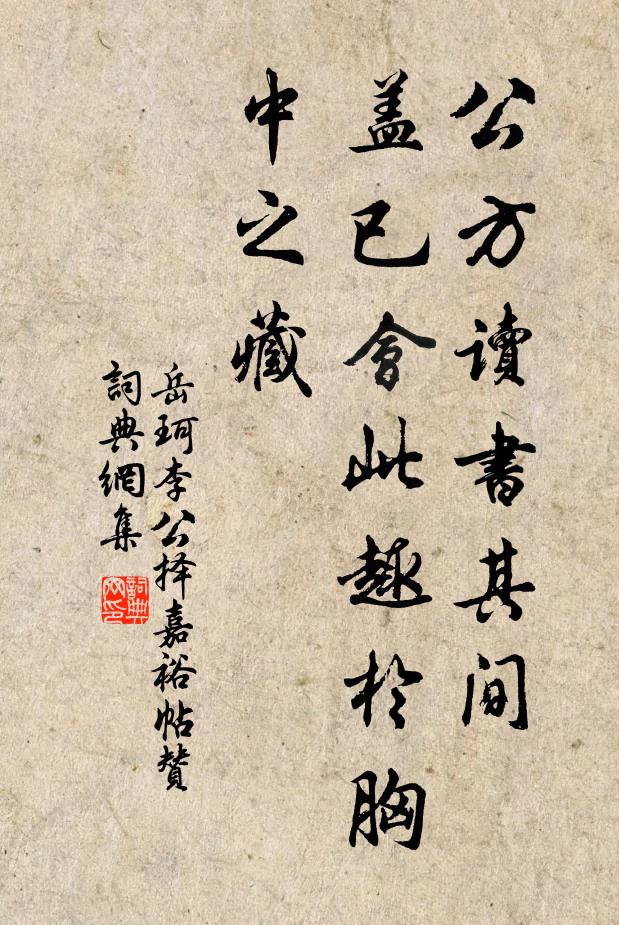 公方讀書其間
蓋已會此趣於胸
中之藏
岳珂李公择嘉裕帖贊
詞典網集
詞典網印